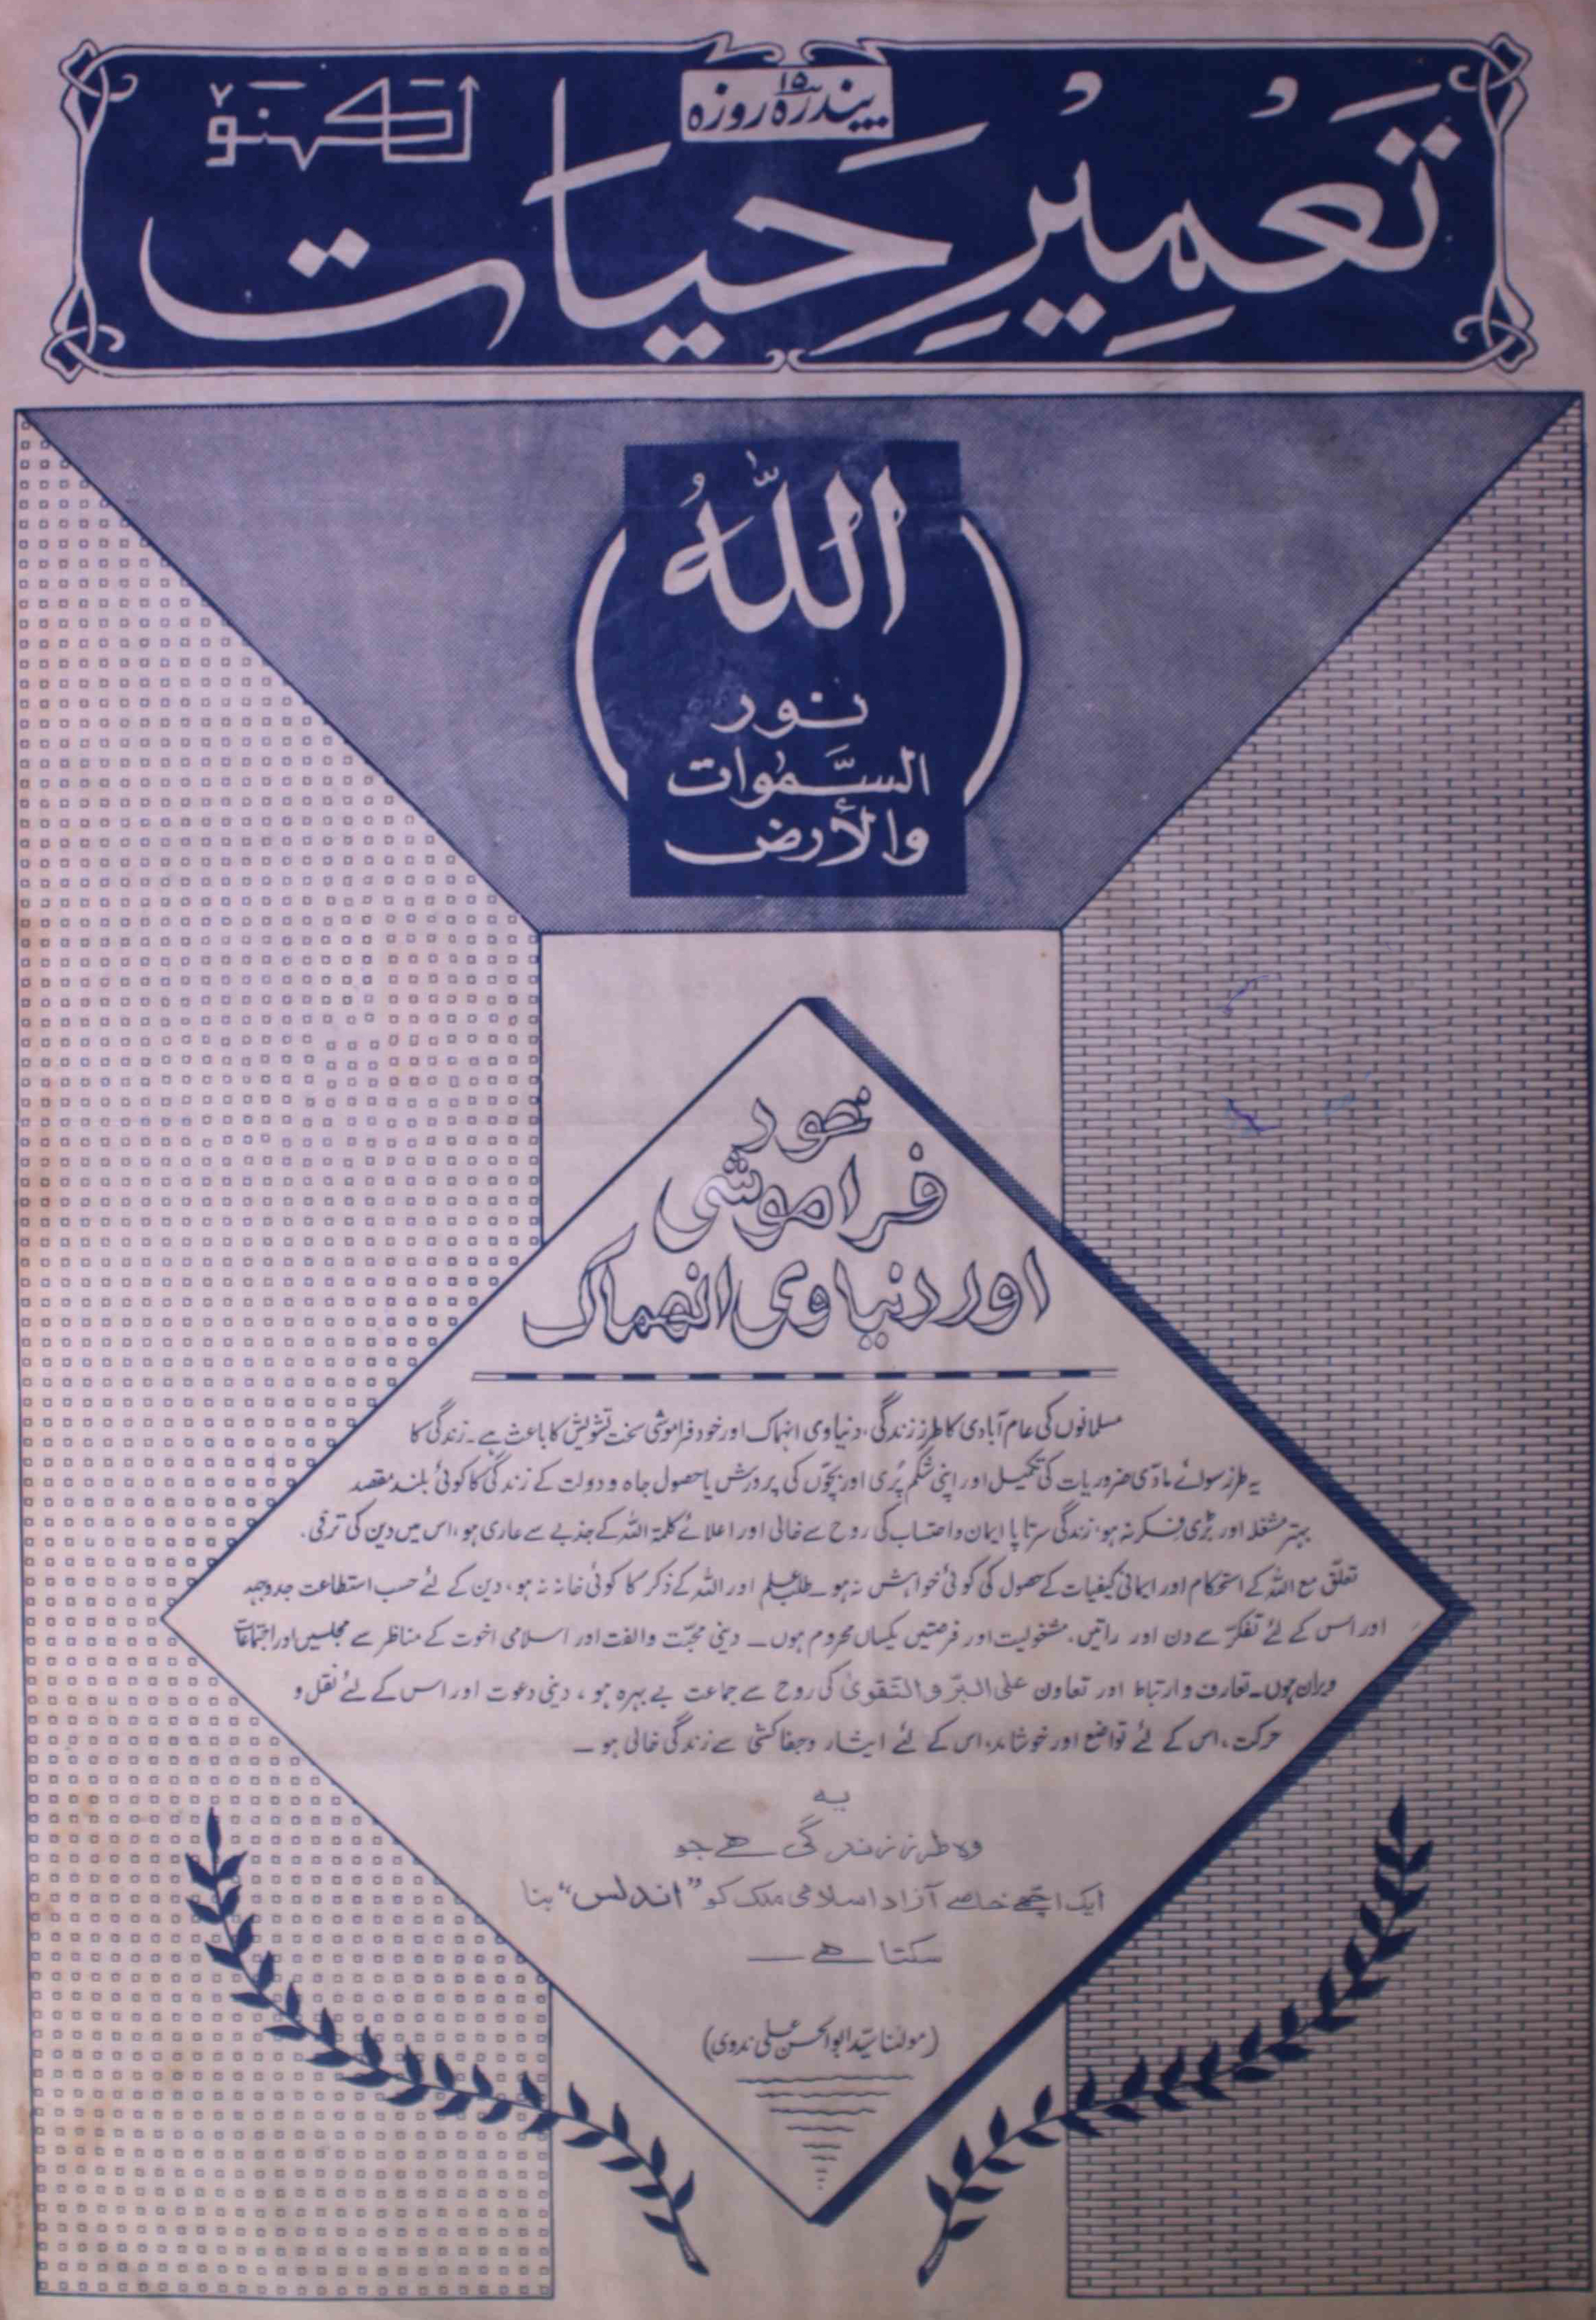 پندرہ ۱۵ روزہ
تَعمِیرِ حَیات
لکھنؤ
اللّٰہُ
نور
السَّمٰوات
والأرض
خود
فراموشی
اور دنیاوی انھماک
مسلمانوں کی عام آبادی کا طرز زندگی، دنیاوی انہماک اور خود فراموشی سخت تشویش کا باعث ہے۔ زندگی کا
یہ طرز سوائے مادّی ضروریات کی تکمیل اور اپنی شکم پُری اور بچّوں کی پرورش یا حصول جاہ و دولت کے زندگی کا کوئی بلند مقصد
بہتر مشغلہ اور بڑی فکر نہ ہو، زندگی سرتاپا ایمان و احتساب کی روح سے خالی اور اعلائے کلمۃ اللہ کے جذبے سے عاری ہو، اس میں دین کی ترقی،
تعلّق مع اللہ کے استحکام اور ایمانی کیفیات کے حصول کی کوئی خواہش نہ ہو۔ طلب علم اور اللہ کے ذکر کا کوئی خانہ نہ ہو، دین کے لئے حسب استطاعت جدوجہد
اور اس کے لئے تفکّر سے دن اور راتیں، مشغولیت اور فرصتیں یکساں محروم ہوں۔ دینی محبّت و الفت اور اسلامی اخوت کے مناظر سے مجلسیں اور اجتماعات
ویران ہوں۔ تعارف و ارتباط اور تعاون علی البرّ والتقویٰ کی روح سے جماعت بے بہرہ ہو، دینی دعوت اور اس کے لئے نقل و
حرکت، اس کے لئے تواضع اور خوشامد، اس کے لئے ایثار و جفاکشی سے زندگی خالی ہو۔
یہ
وہ طرز زندگی ہے جو
ایک اچھے خاصے آزاد اسلامی ملک کو ”اندلس“ بنا
سکتا ہے۔
(مولٰنا سیّد ابوالحسن علی ندوی)